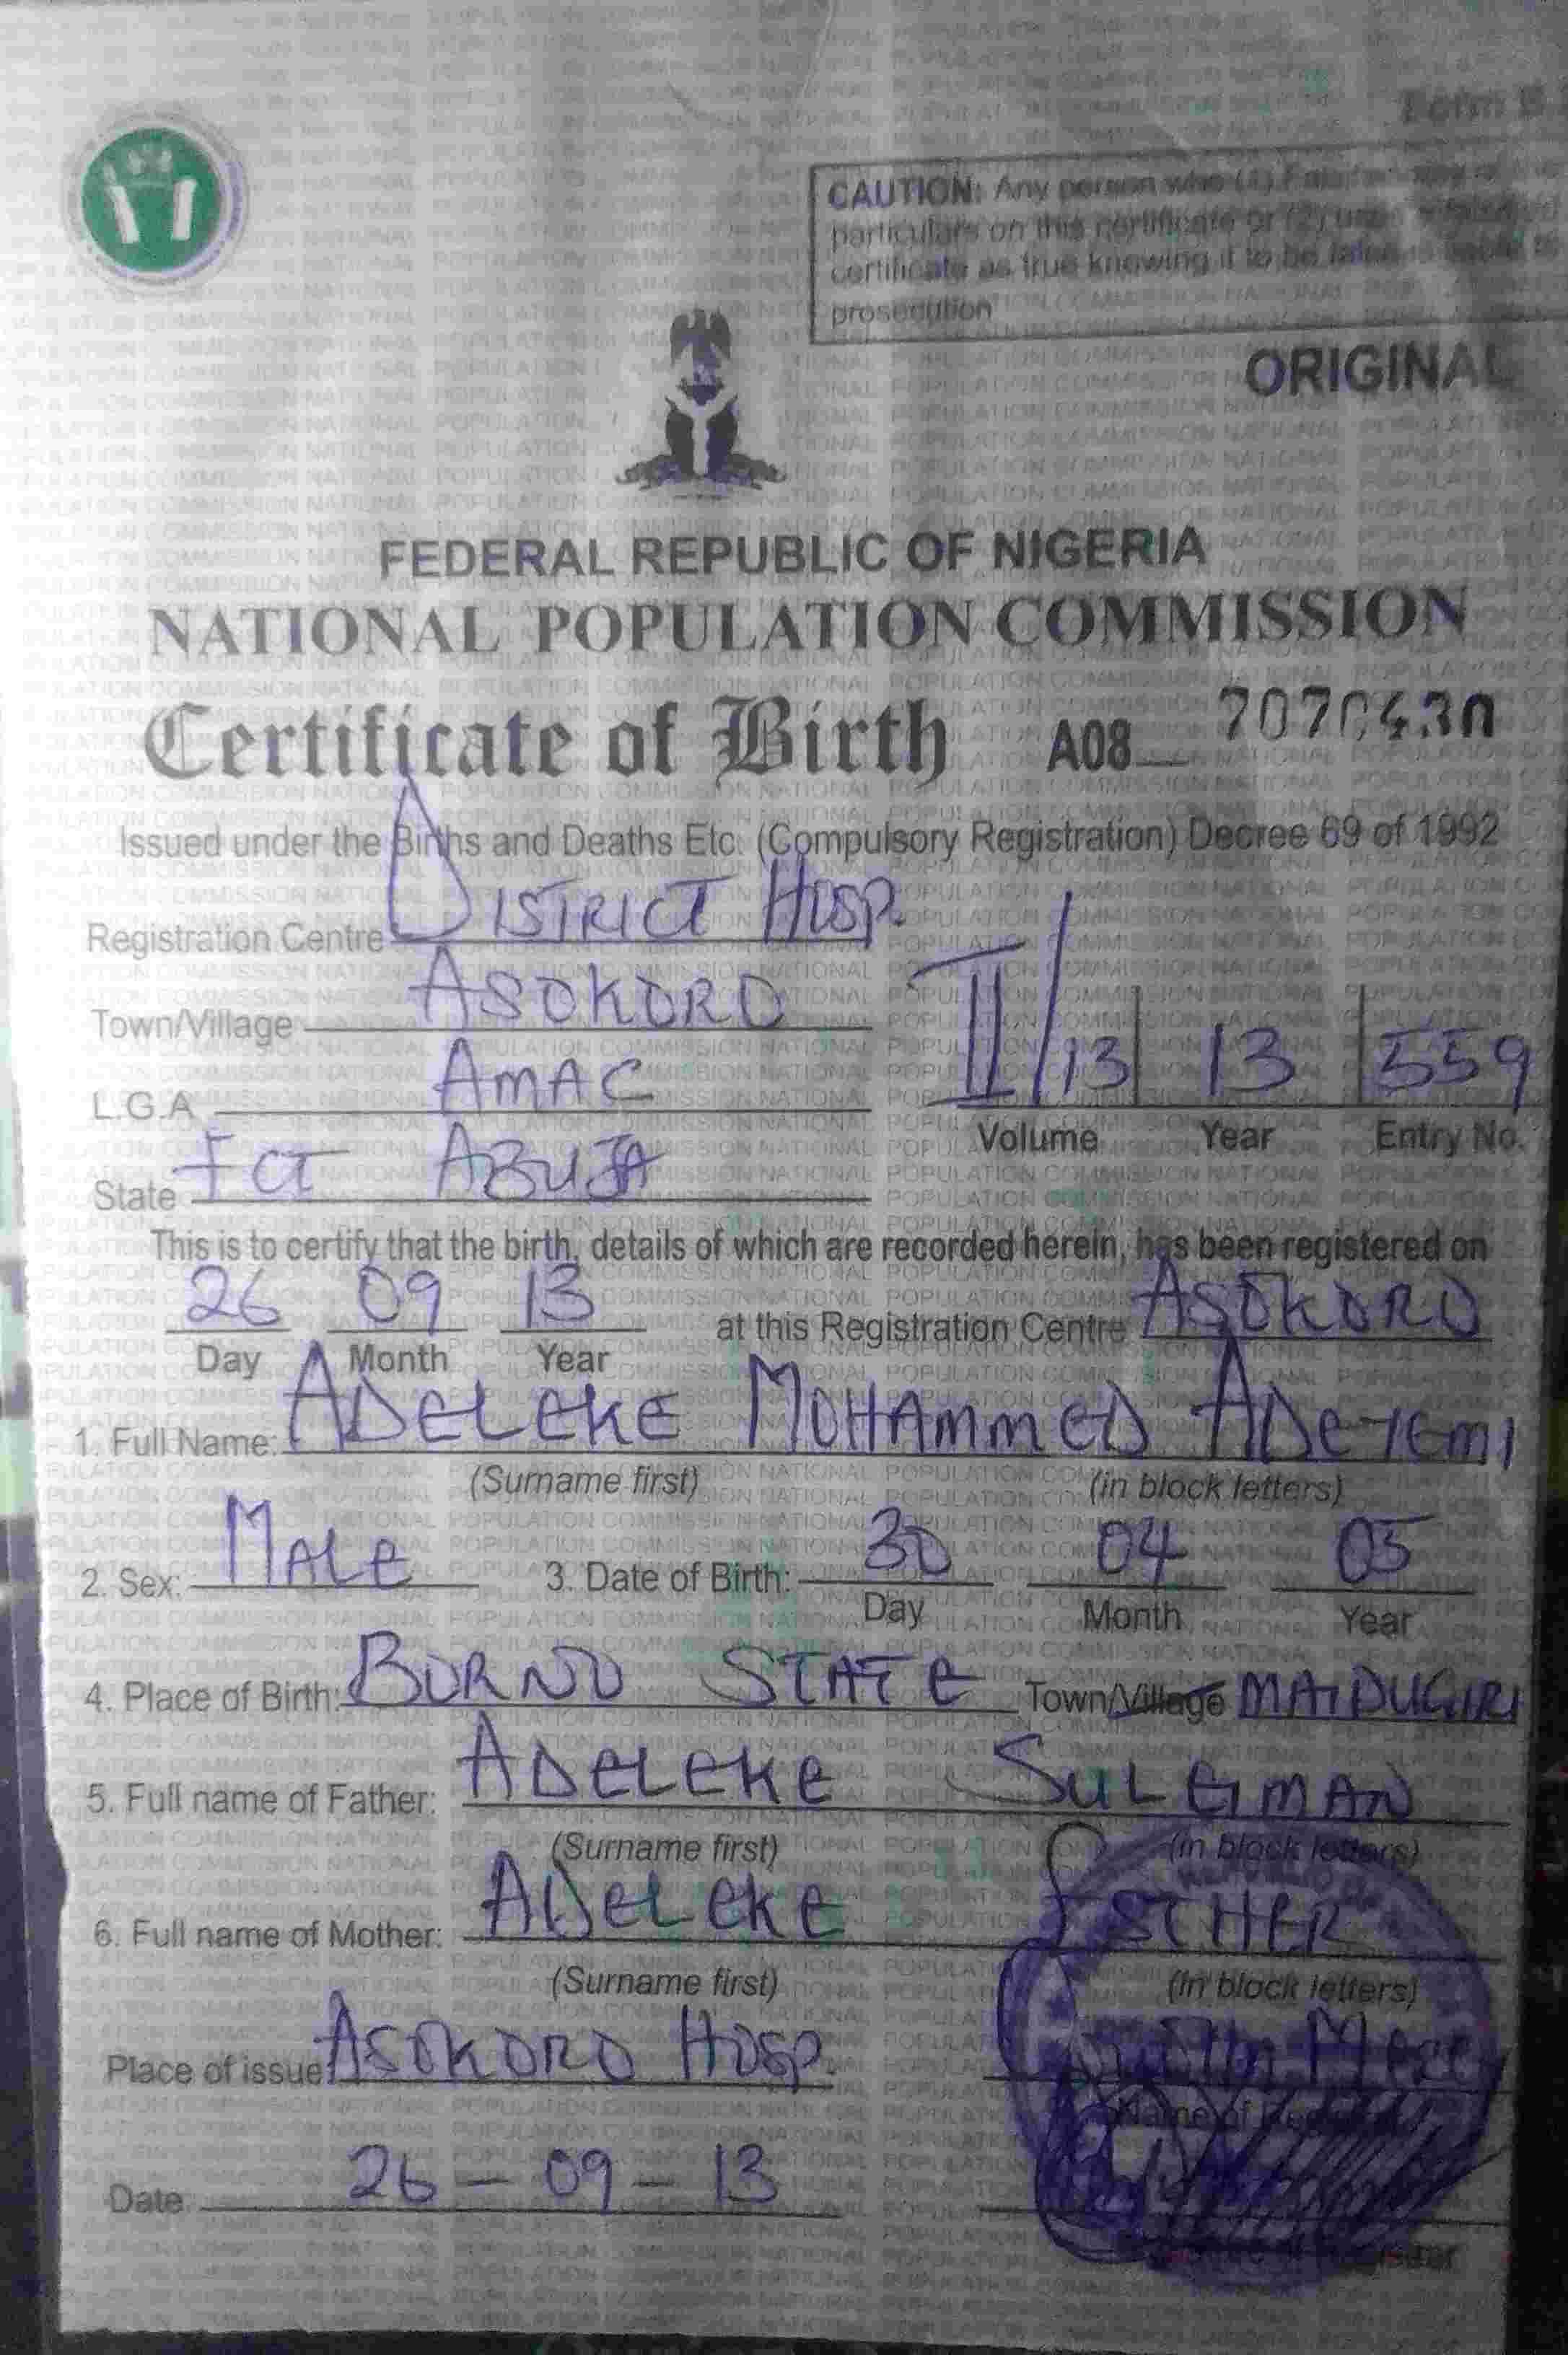 Form B
CAUTION: Any person who (1) Falsifies any of the
particulars on this certificate or (2) uses a falsified
certificate as true knowing it to be false is liable to
prosecution
ORIGINAL
FEDERAL REPUBLIC OF NIGERIA
NATIONAL POPULATION COMMISSION
Certificate of Birth A08
Issued under the Births and Deaths Etc. (Compulsory Registration) Decree 69 of 1992
Registration Centre DISTRICT HOSP.
Town/Village ASOKORO
L.G.A AMAC II/13 13 559
Volume Year Entry No.
State FCT ABUJA
This is to certify that the birth, details of which are recorded herein, has been registered on
26 09 13 at this Registration Centre ASOKORO
Day Month Year
1. Full Name: ADELEKE MOHAMMED ADEYEMI
(Surname first) (in block letters)
2. Sex: MALE 3. Date of Birth: 30 04 05
Day Month Year
4. Place of Birth: BORNO STATE Town/Village MAIDUGIRI
5. Full name of Father: ADELEKE SULEIMAN
(Surname first) (in block letters)
6. Full name of Mother: ADELEKE ESTHER
(Surname first) (in block letters)
Place of issue ASOKORO HOSP.
Name of
Date 26-09-13